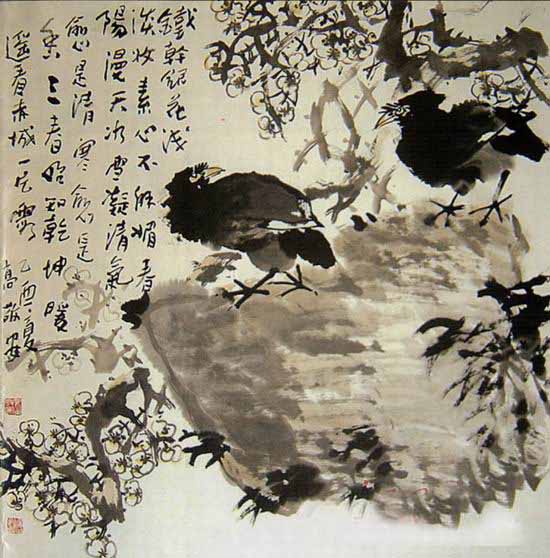 鐵幹銀花淺
淡妝素心不解媚春
陽漫天冰雪凝清氣
愈是清寒愈是
香三春始知乾坤暖
遥看赤城一片霞 乙酉夏
高